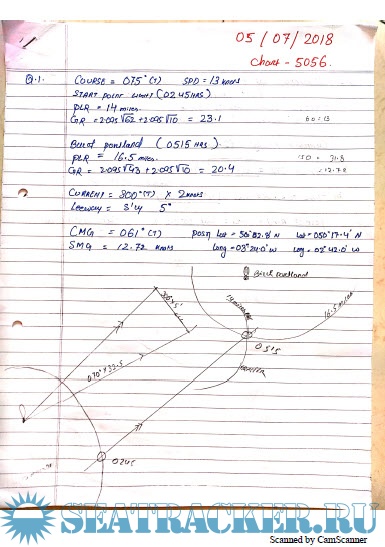 05/07/2018
Chart - 5056.
Q.1. COURSE = 075°(T) SPD = 13 knots
START POINT LIGHT (0245 HRS)
PLR = 14 miles.
GR = 2.095√62 + 2.095√10 = 23.1
Bill of portland (0515 HRS)
PLR = 16.5 miles.
GR = 2.095√43 + 2.095√10 = 20.4
CURRENT = 300°(T) × 2 knots
Leeway = 5°
CMG = 061°(T) posn lat = 50°32.8' N lat = 050°17.4' N
SMG = 12.72 knots long = 03°42.0' W
Bill of portland
16.5 miles
0515
070° × 32.5
0245
SEATRACKER.RU
Scanned by CamScanner